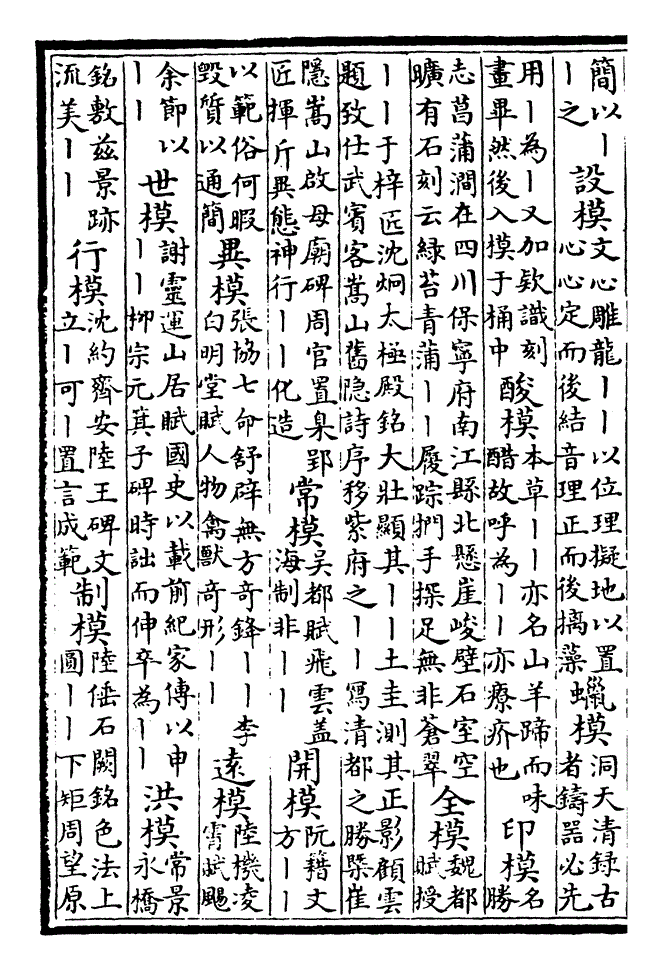 簡以丨丨之設模文心雕龍丨丨以位理擬地以置心心定而後結音理正而後摛藻蠟模洞天清録古者鑄器必先
用丨為丨又加欵識刻畫畢然後入模于桶中酸模本草丨丨亦名山羊蹄而味醋故呼為丨丨亦療疥也印模名勝
志菖蒲澗在四川保寧府南江縣北懸崖峻壁石室空曠有石刻云緑苔青蒲丨丨履踪捫手探足無非蒼翠全模魏都賦授
丨丨于梓匠沈炯太極殿銘大壯顯其丨丨土圭測其正影顧雲題致仕武賓客嵩山舊隐詩序移紫府之丨丨寫清都之勝槩崔
隱嵩山啟母廟碑周官置臬郢匠揮斤異態神行丨丨化造常模吳都賦飛雲葢海制非丨丨開模阮籍文方丨丨
以範俗何暇毁質以通簡異模張協七命舒辟無方奇鋒丨丨李白明堂賦人物禽獸奇形丨丨遠模陸機凌霄賦颺
余節以丨丨世模謝靈運山居賦國史以載前紀家傳以申丨丨柳宗元箕子碑時詘而伸卒為丨丨洪模常景永橋
銘敷兹景跡流美丨丨行模沈約齊安陸王碑文立丨可丨置言成範制模陸倕石闕銘色法上圖丨丨下矩周望原